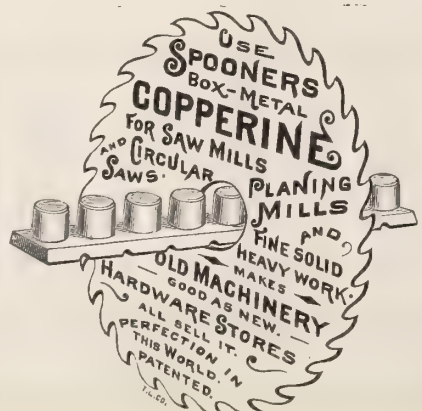 USE
SPOONERS
BOX-METAL
COPPERINE
FOR SAW MILLS
AND CIRCULAR
SAWS.
PLANING
MILLS
AND
FINE SOLID
HEAVY WORK.
MAKES
OLD MACHINERY
GOOD AS NEW.
HARDWARE STORES
ALL SELL IT.
PERFECTION IN
THIS WORLD.
PATENTED.
T.L.CO.